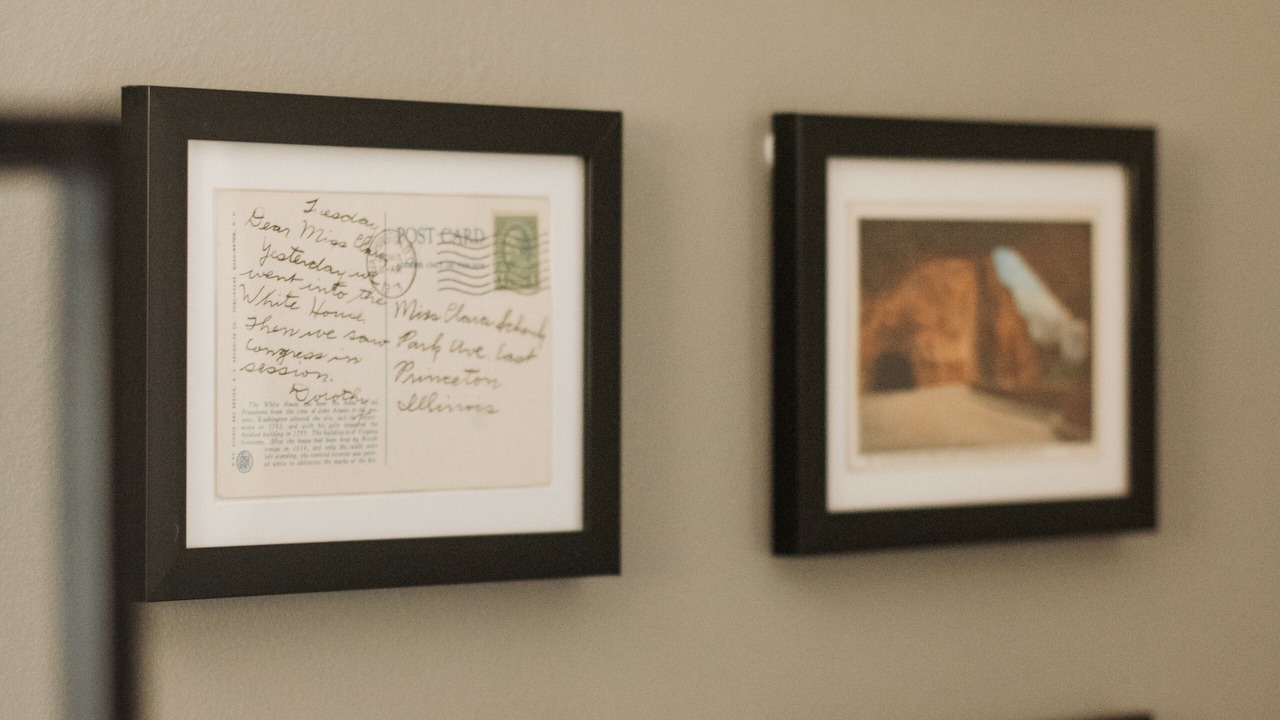 Tuesday
Dear Miss Clara
Yesterday we
went into the
White House
Then we saw
Congress in
session.
Dorothy
POST CARD
Miss Clara
Park Ave. East
Princeton
Illinois
The White House has been the home of
Presidents from the time of John Adams to the
Washington selected the site, laid the
stone in 1792, and with his wife
finished building in 1799. The building is of Virginia
freestone. After the house had been fired by British
troops in 1814, and only the walls were
left standing, the restored structure was
ed white to obliterate the marks of the fire.